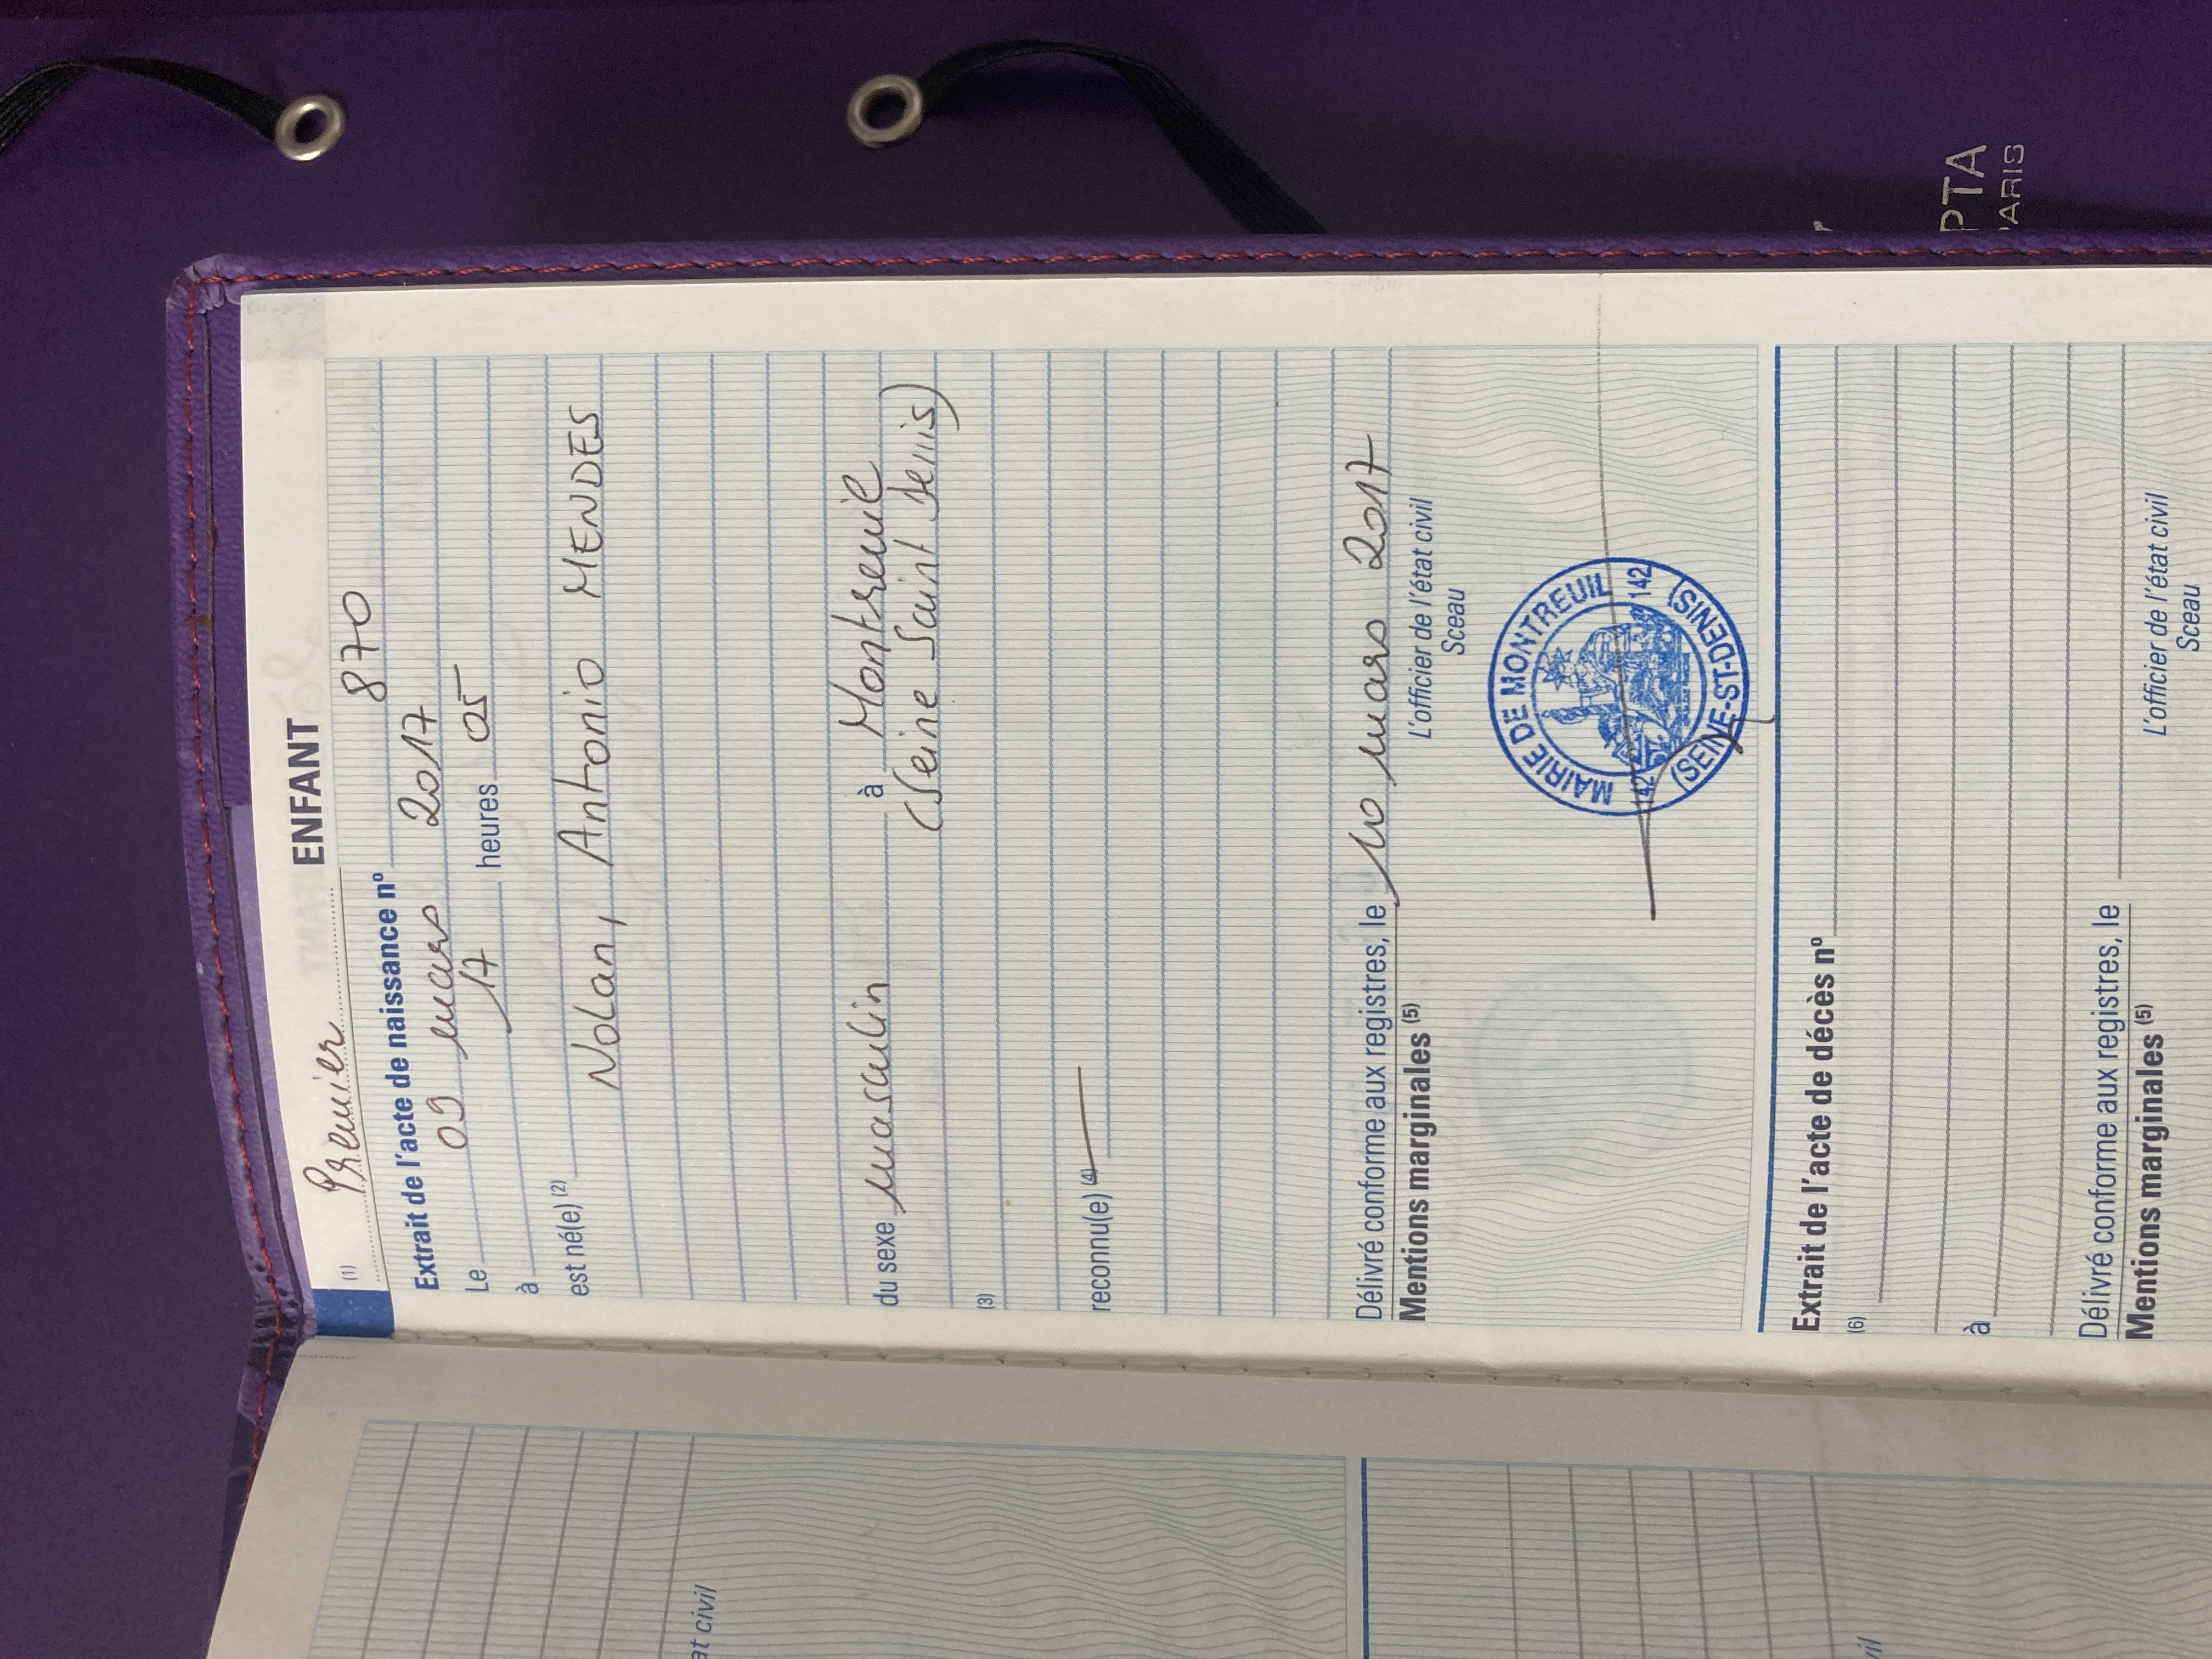 (1) Premier ENFANT
Extrait de l'acte de naissance nº 870
Le 09 mars 2017
à 17 heures 05
est né(e) (2)
Nolan, Antonio MENDES
du sexe masculin à Montreuil
(Seine Saint Denis)
(3)
reconnu(e) (4)
Délivré conforme aux registres, le 10 mars 2017
Mentions marginales (5)
L'officier de l'état civil
Sceau
MAIRIE DE MONTREUIL
142 142
(SEINE-ST-DENIS)
Extrait de l'acte de décès nº
(6)
à
Délivré conforme aux registres, le
Mentions marginales (5)
L'officier de l'état civil
Sceau
at civil
vil
PTA
PARIS